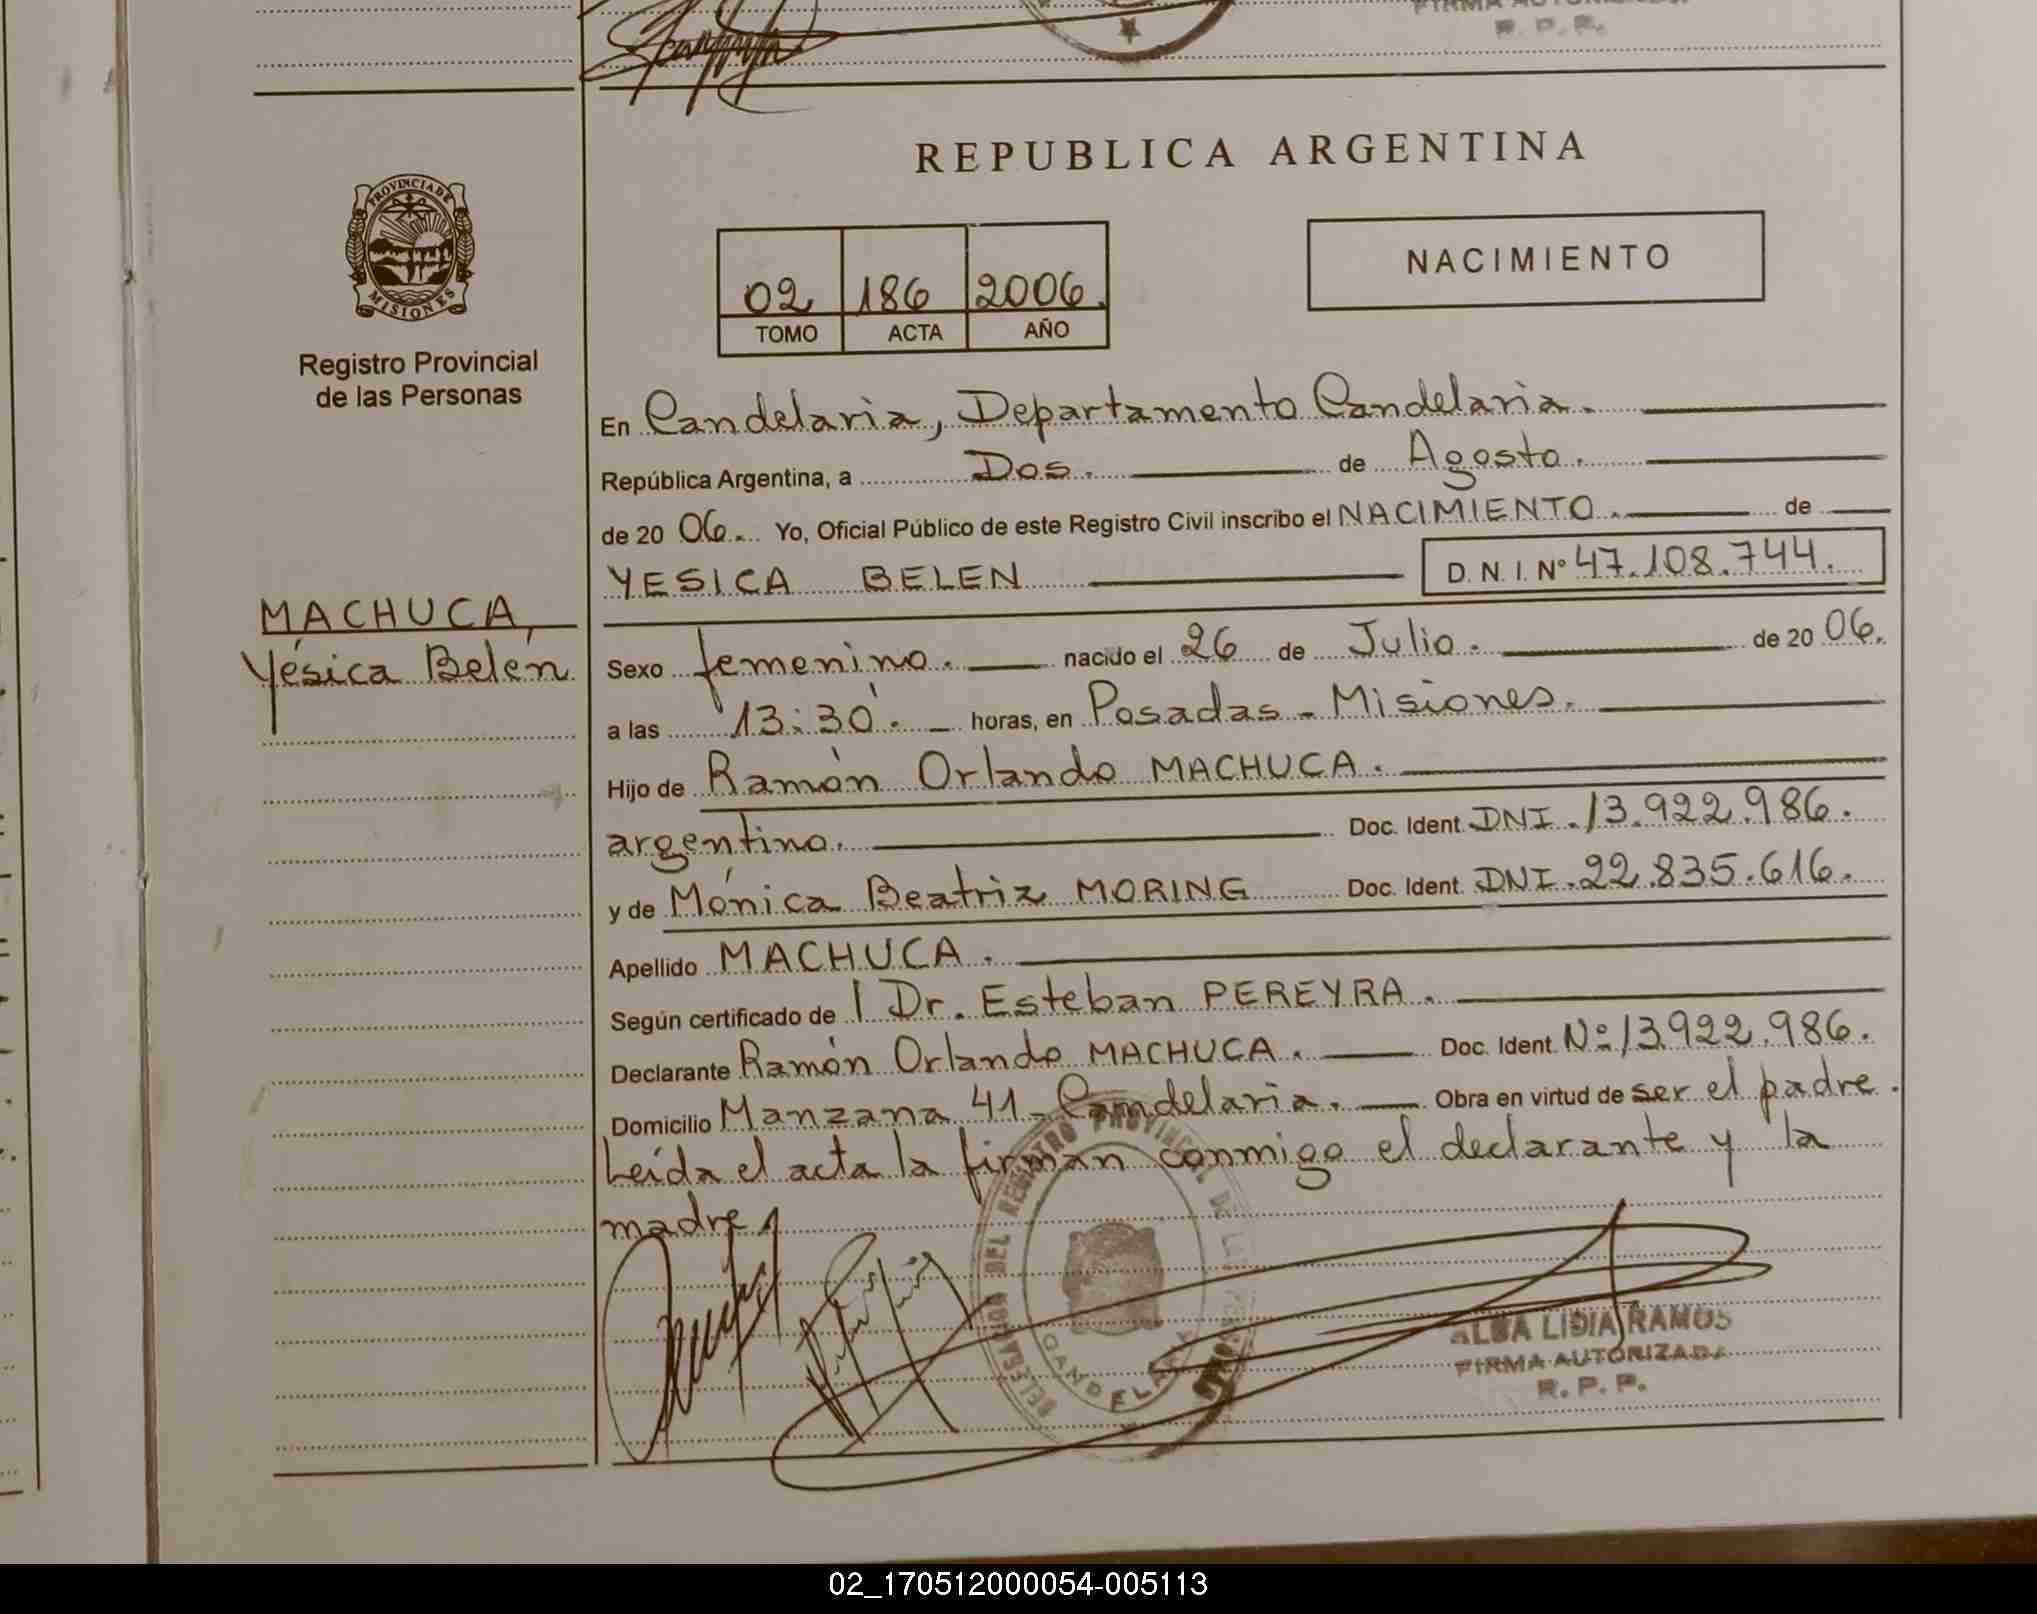 FIRMA AUTORIZADA
R. P. P.
REPUBLICA ARGENTINA
PROVINCIA DE
MISIONES
Registro Provincial
de las Personas
02 186 2006.
TOMO ACTA AÑO
NACIMIENTO
En Candelaria, Departamento Candelaria.
República Argentina, a Dos. de Agosto.
de 20 06. Yo, Oficial Público de este Registro Civil inscribo el NACIMIENTO. de
YESICA BELEN D. N. I. Nº 47.108.744.
MACHUCA,
Yésica Belén
Sexo femenino. nacido el 26 de Julio. de 20 06.
a las 13:30. horas, en Posadas - Misiones.
Hijo de Ramón Orlando MACHUCA.
argentino. Doc. Ident. DNI. 13.922.986.
y de Mónica Beatriz MORING Doc. Ident. DNI. 22.835.616.
Apellido MACHUCA.
Según certificado de l Dr. Esteban PEREYRA.
Declarante Ramón Orlando MACHUCA. Doc. Ident. Nº 13.922.986.
Domicilio Manzana 41 - Candelaria. Obra en virtud de ser el padre.
Leída el acta la firman conmigo el declarante y la
madre.
DEL REGISTRO PROVINCIAL DE LAS
CANDELARIA
ALBA LIDIA RAMOS
FIRMA AUTORIZADA
R. P. P.
02_170512000054-005113